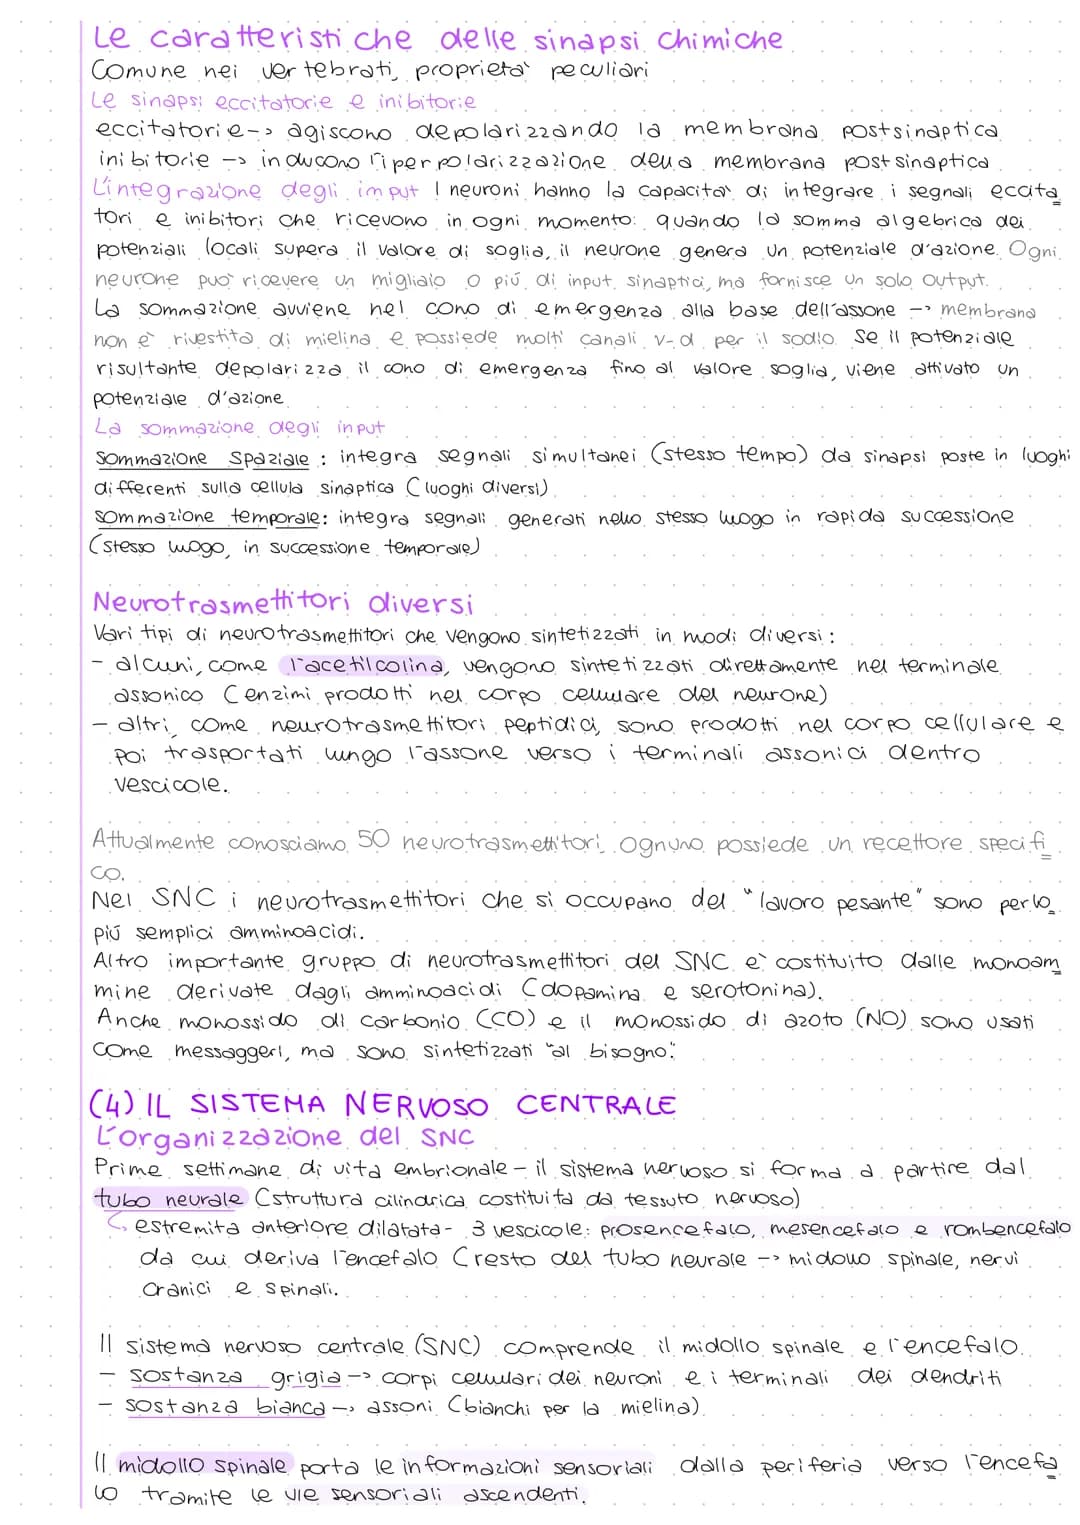 Le caratteristiche delle sinapsi chimiche
Comune nei vertebrati, proprietà peculiari
Le sinapsi eccitatorie e inibitorie
eccitatorie -> agiscono depolarizzando la membrana postsinaptica
inibitorie -> inducono l'iperpolarizzazione della membrana postsinaptica
L'integrazione degli imput I neuroni hanno la capacità di integrare i segnali eccita
tori e inibitori che ricevono in ogni momento: quando la somma algebrica dei
potenziali locali supera il valore di soglia, il neurone genera un potenziale d'azione. Ogni
neurone può ricevere un migliaio o più di input sinaptici, ma fornisce un solo output.
La sommazione avviene nel cono di emergenza alla base dell'assone -> membrana
non è rivestita di mielina e possiede molti canali v-d per il sodio. Se il potenziale
risultante depolarizza il cono di emergenza fino al valore soglia, viene attivato un
potenziale d'azione
La sommazione degli input
sommazione spaziale: integra segnali simultanei (stesso tempo) da sinapsi poste in luoghi
differenti sulla cellula sinaptica (luoghi diversi)
sommazione temporale: integra segnali generati nello stesso luogo in rapida successione
(stesso luogo, in successione temporale)
Neurotrasmettitori diversi
Vari tipi di neurotrasmettitori che vengono sintetizzati in modi diversi:
- alcuni, come l'acetilcolina, vengono sintetizzati direttamente nel terminale
assonico (enzimi prodotti nel corpo cellulare del neurone)
- altri, come neurotrasmettitori peptidici, sono prodotti nel corpo cellulare e
poi trasportati lungo l'assone verso i terminali assonici dentro
vescicole.
Attualmente conosciamo 50 neurotrasmettitori. Ognuno possiede un recettore specifi
co.
Nel SNC i neurotrasmettitori che si occupano del "lavoro pesante" sono per lo
più semplici amminoacidi.
Altro importante gruppo di neurotrasmettitori del SNC è costituito dalle monoam
mine derivate dagli amminoacidi (dopamina e serotonina).
Anche monossido di carbonio (CO) e il monossido di azoto (NO) sono usati
come messaggeri, ma sono sintetizzati "al bisogno."
(4) IL SISTEMA NERVOSO CENTRALE
L'organizzazione del SNC
Prime settimane di vita embrionale - il sistema nervoso si forma a partire dal
tubo neurale (struttura cilindrica costituita da tessuto nervoso)
↳ estremità anteriore dilatata - 3 vescicole: prosencefalo, mesencefalo e rombencefalo
da cui deriva l'encefalo (resto del tubo neurale -> midollo spinale, nervi
cranici e spinali.
Il sistema nervoso centrale (SNC) comprende il midollo spinale e l'encefalo.
- sostanza grigia -> corpi cellulari dei neuroni e i terminali dei dendriti
- sostanza bianca -> assoni (bianchi per la mielina)
Il midollo spinale porta le informazioni sensoriali dalla periferia verso l'encefa
lo tramite le vie sensoriali ascendenti.